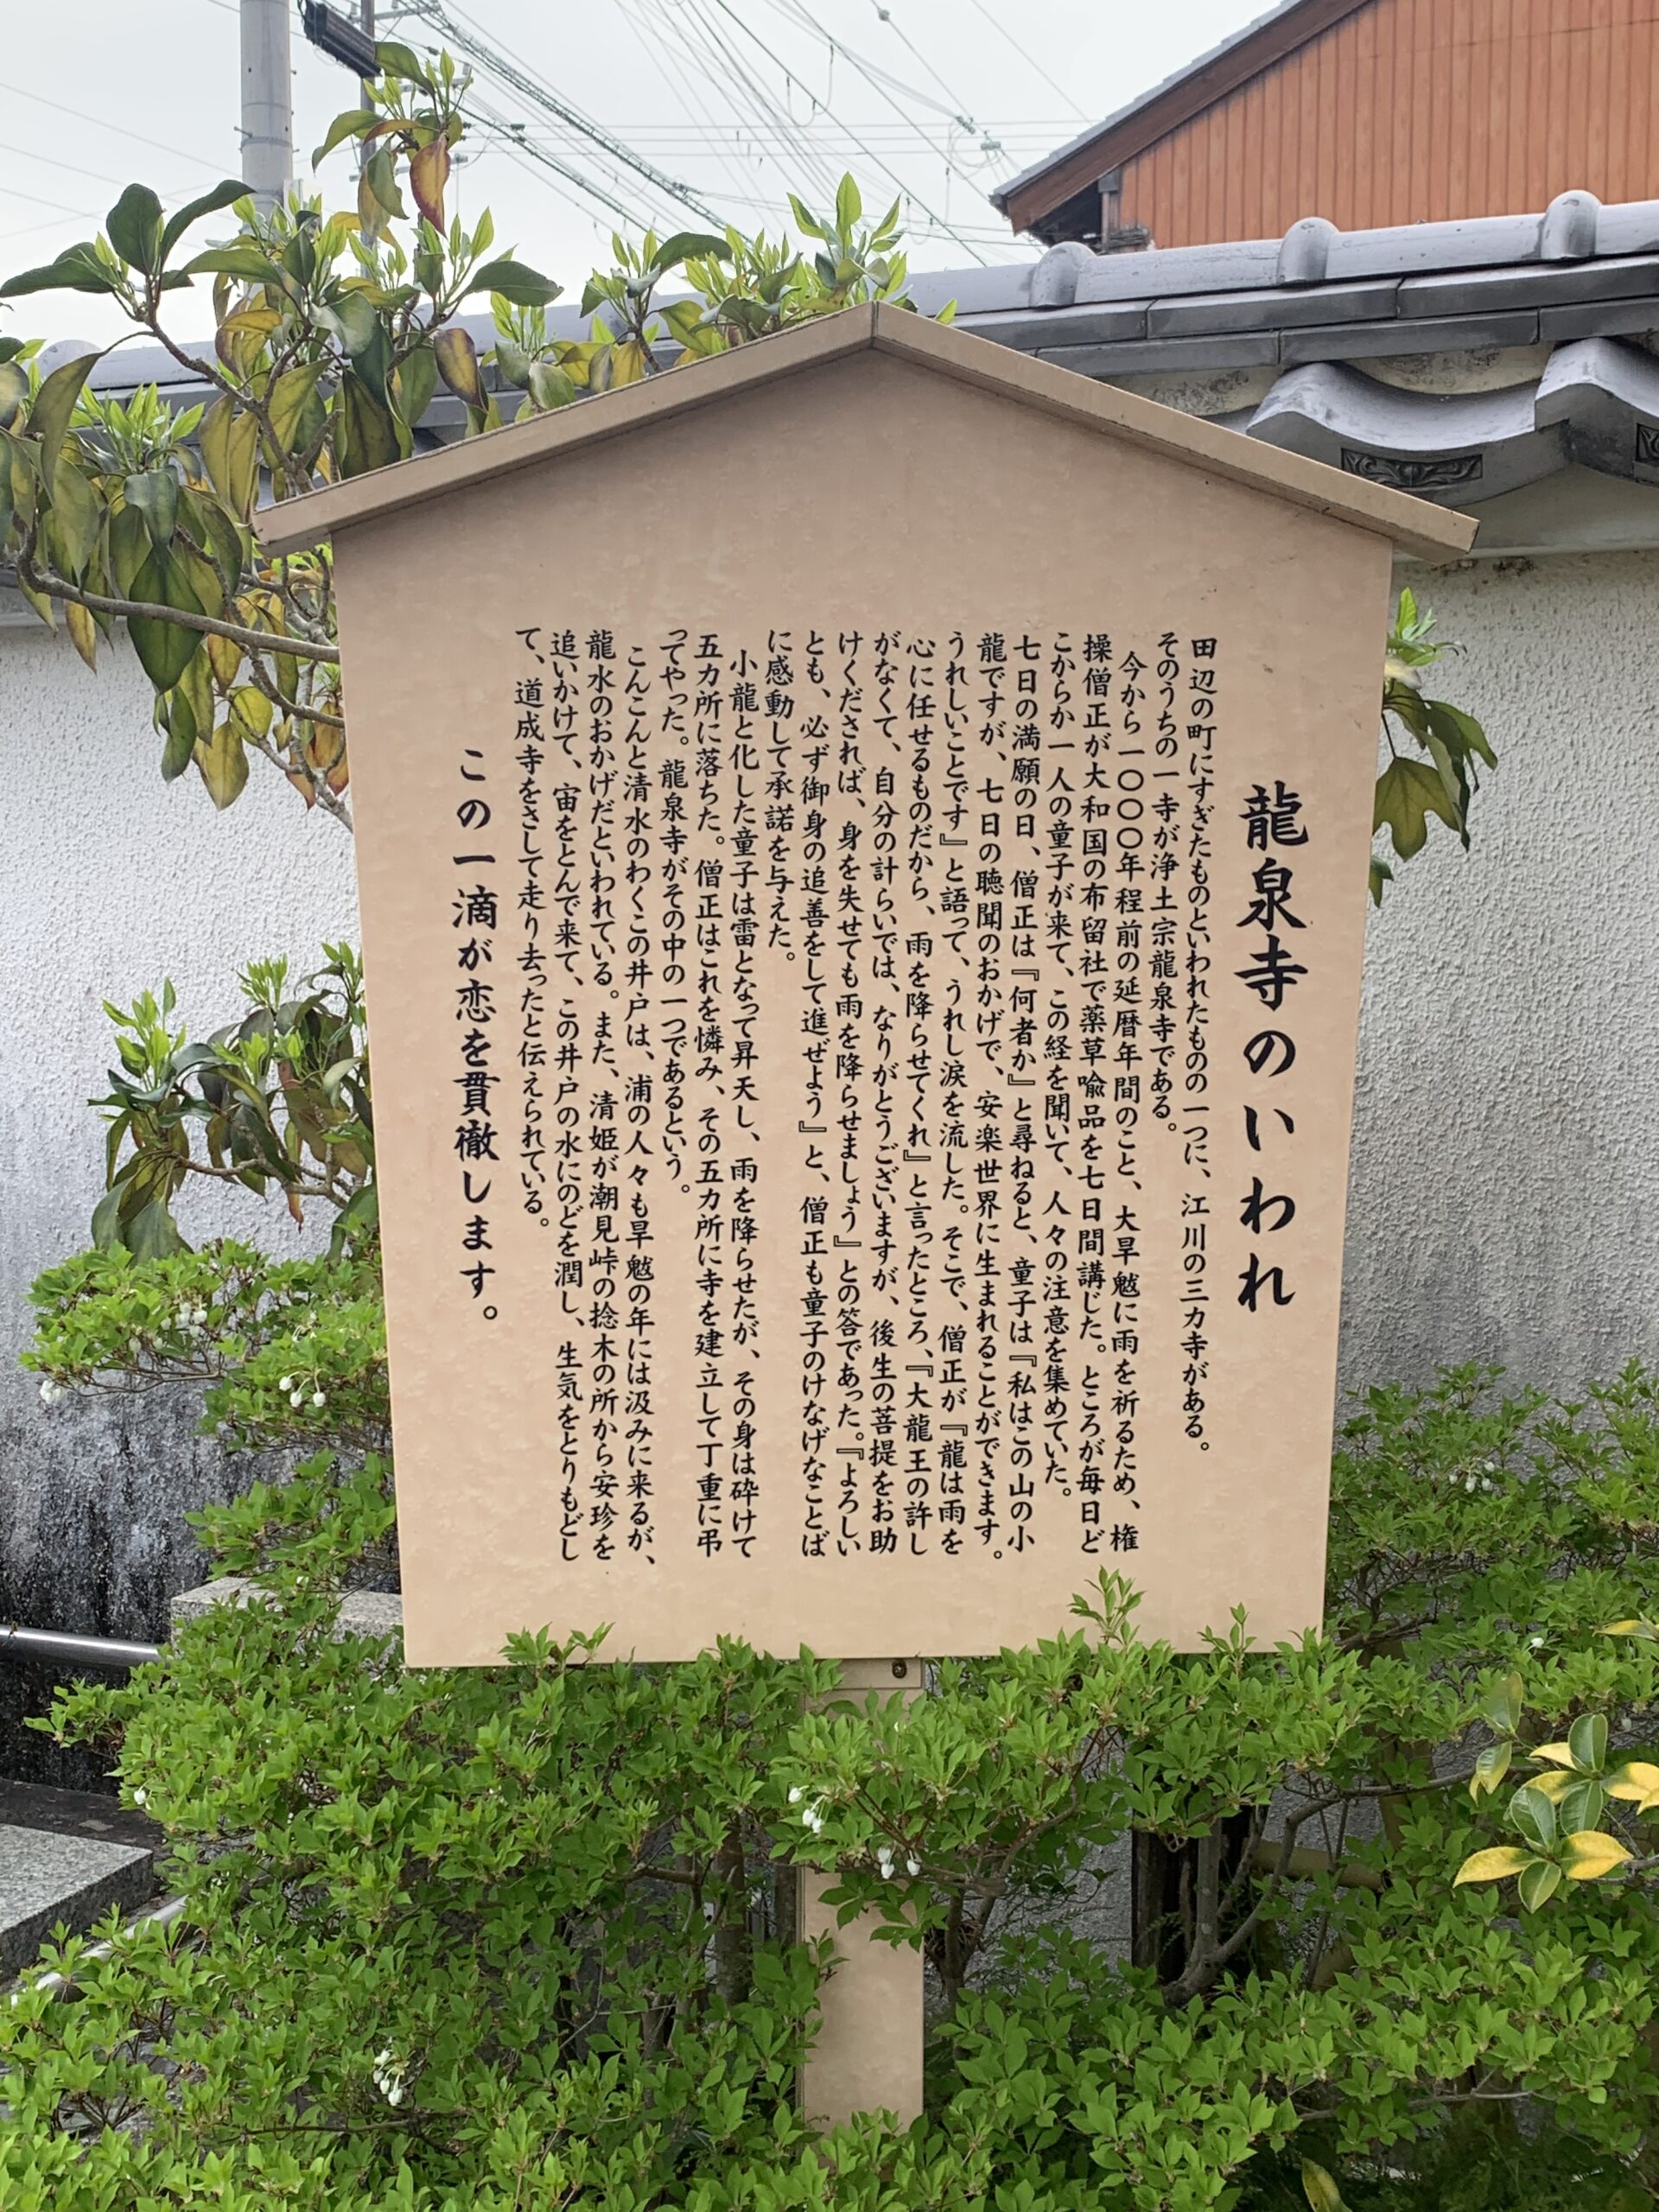 龍泉寺のいわれ
田辺の町にすぎたものといわれたものの一つに、江川の三カ寺がある。
そのうちの一寺が浄土宗龍泉寺である。
今から一〇〇〇年程前の延暦年間のこと、大旱魃に雨を祈るため、権
操僧正が大和国の布留社で薬草喩品を七日間講じた。ところが毎日ど
こからか一人の童子が来て、この経を聞いて、人々の注意を集めていた。
七日の満願の日、僧正は『何者か』と尋ねると、童子は『私はこの山の小
龍ですが、七日の聴聞のおかげで、安楽世界に生まれることができます。
うれしいことです』と語って、うれし涙を流した。そこで、僧正が『龍は雨を
心に任せるものだから、雨を降らせてくれ』と言ったところ、『大龍王の許し
がなくて、自分の計らいでは、なりがとうございますが、後生の菩提をお助
けくだされば、身を失せても雨を降らせましょう』との答であった。『よろしい
とも、必ず御身の追善をして進ぜよう』と、僧正も童子のけなげなことば
に感動して承諾を与えた。
小龍と化した童子は雷となって昇天し、雨を降らせたが、その身は砕けて
五カ所に落ちた。僧正はこれを憐み、その五カ所に寺を建立して丁重に弔
ってやった。龍泉寺がその中の一つであるという。
こんこんと清水のわくこの井戸は、浦の人々も旱魃の年には汲みに来るが、
龍水のおかげだといわれている。また、清姫が潮見峠の捻木の所から安珍を
追いかけて、宙をとんで来て、この井戸の水にのどを潤し、生気をとりもどし
て、道成寺をさして走り去ったと伝えられている。
この一滴が恋を貫徹します。